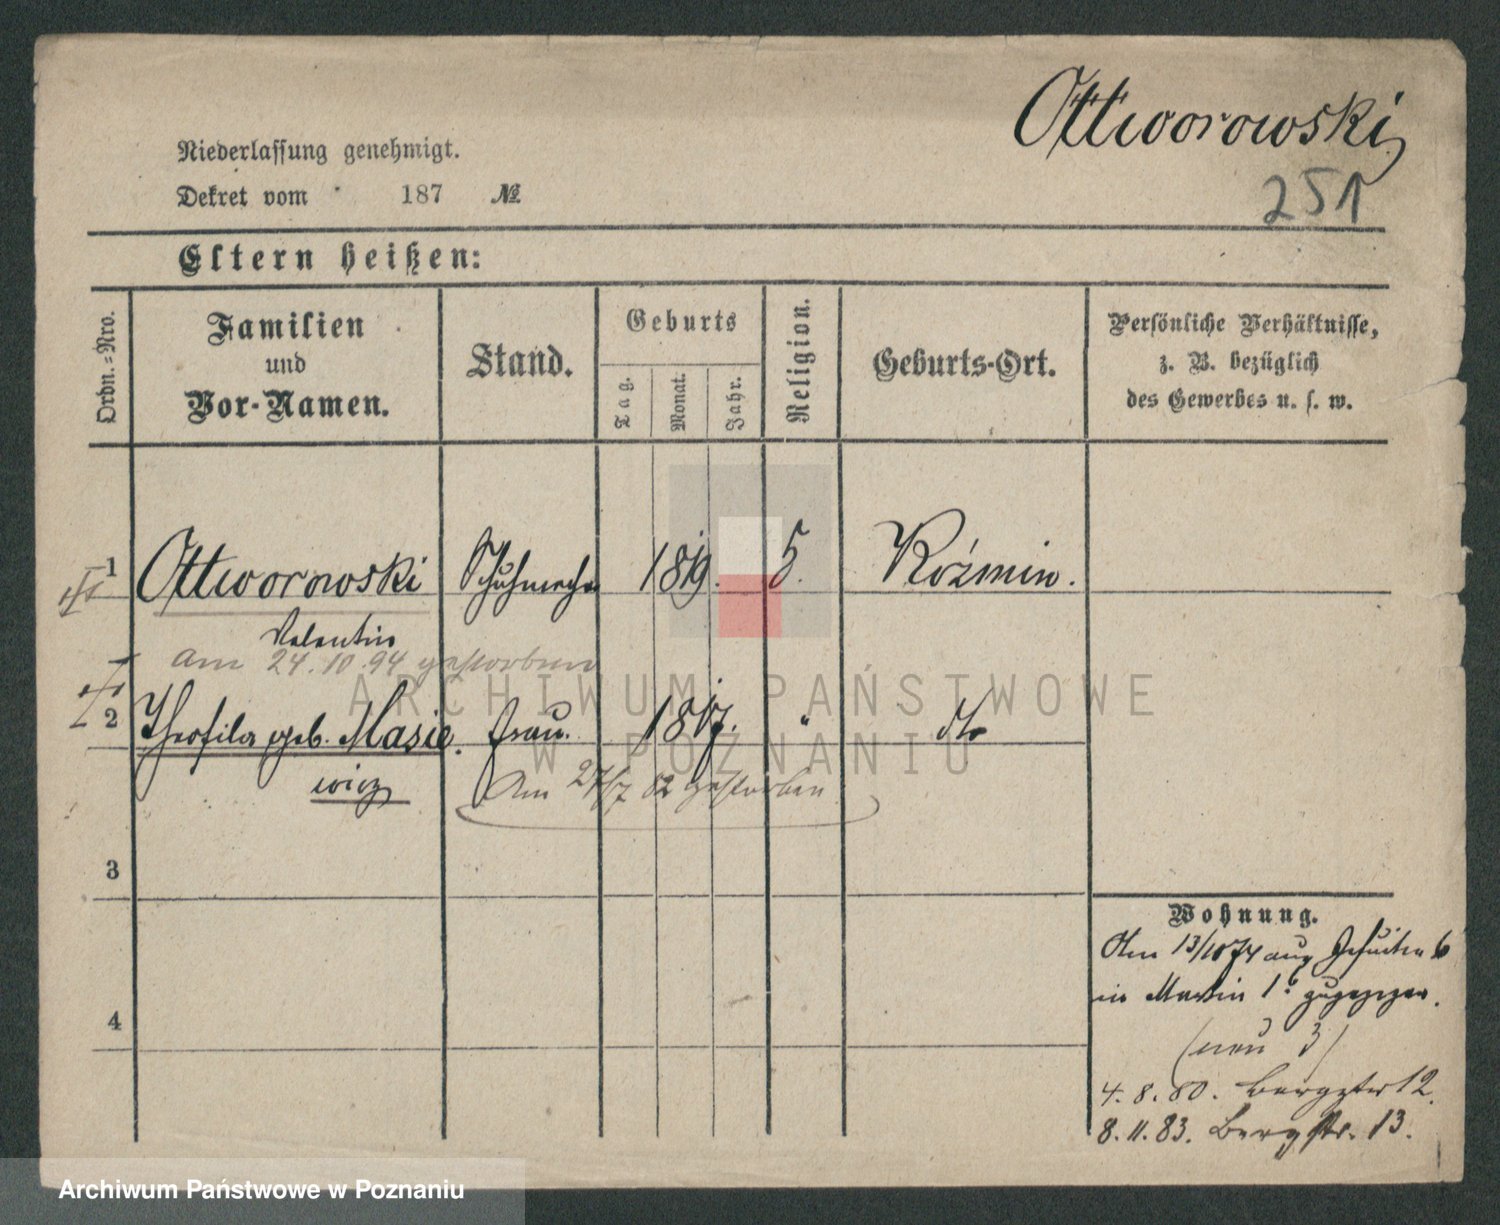 Ottworowski
251
Niederlassung genehmigt.
Dekret vom 187 №
Eltern heißen:
Ordn.-Nro.
Familien
und
Vor-Namen.
Stand.
Geburts
Tag.
Monat.
Jahr.
Religion.
Geburts-Ort.
Persönliche Verhältnisse,
z. B. bezüglich
des Gewerbes u. s. w.
1 Ottworowski Schuhmacher 1819. Koźmin.
Valentin
am 24.10.94 gestorben
2 Theofila geb. Masie. Frau. 1817. " dto
wicz Am 27/7 82 gestorben
3
4
Wohnung.
Am 13/10 74 aus Jesuiten 6
in Martin 1 zugezogen.
(neu 3)
4.8.80. Bergstr 12.
8.11.83. Bergstr. 13.
ARCHIWUM PAŃSTWOWE
W POZNANIU
Archiwum Państwowe w Poznaniu